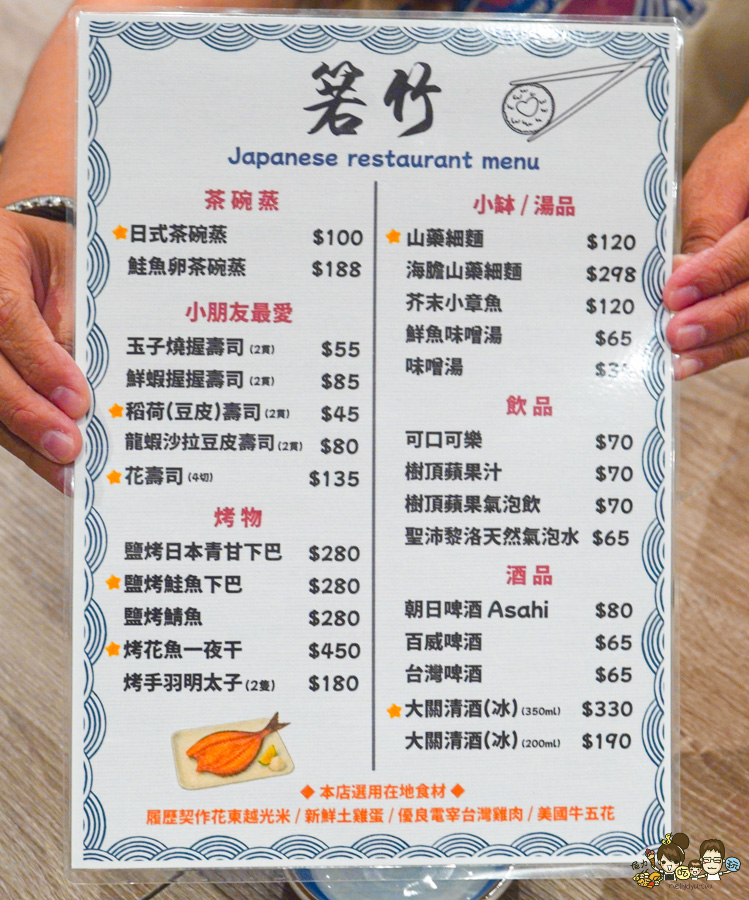 箬竹
Japanese restaurant menu
茶碗蒸
日式茶碗蒸 $100
鮭魚卵茶碗蒸 $188
小朋友最愛
玉子燒握壽司(2貫) $55
鮮蝦握握壽司(2貫) $85
稻荷(豆皮)壽司(2貫) $45
龍蝦沙拉豆皮壽司(2貫) $80
花壽司(4切) $135
烤物
鹽烤日本青甘下巴 $280
鹽烤鮭魚下巴 $280
鹽烤鯖魚 $280
烤花魚一夜干 $450
烤手羽明太子(2隻) $180
小缽/湯品
山藥細麵 $120
海膽山藥細麵 $298
芥末小章魚 $120
鮮魚味噌湯 $65
味噌湯
飲品
可口可樂 $70
樹頂蘋果汁 $70
樹頂蘋果氣泡飲 $70
聖沛黎洛天然氣泡水 $65
酒品
朝日啤酒 Asahi $80
百威啤酒 $65
台灣啤酒 $65
大關清酒(冰)(350ml) $330
大關清酒(冰)(200ml) $190
◆ 本店選用在地食材 ◆
履歷契作花東越光米 / 新鮮土雞蛋 / 優良電宰台灣雞肉 / 美國牛五花